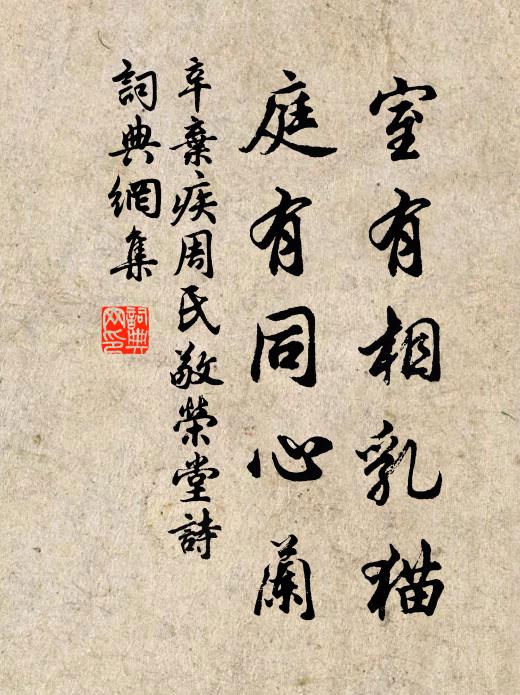 室有相乳猫
庭有同心蘭
辛棄疾周氏敬榮堂詩
詞典網集
詞典
网印